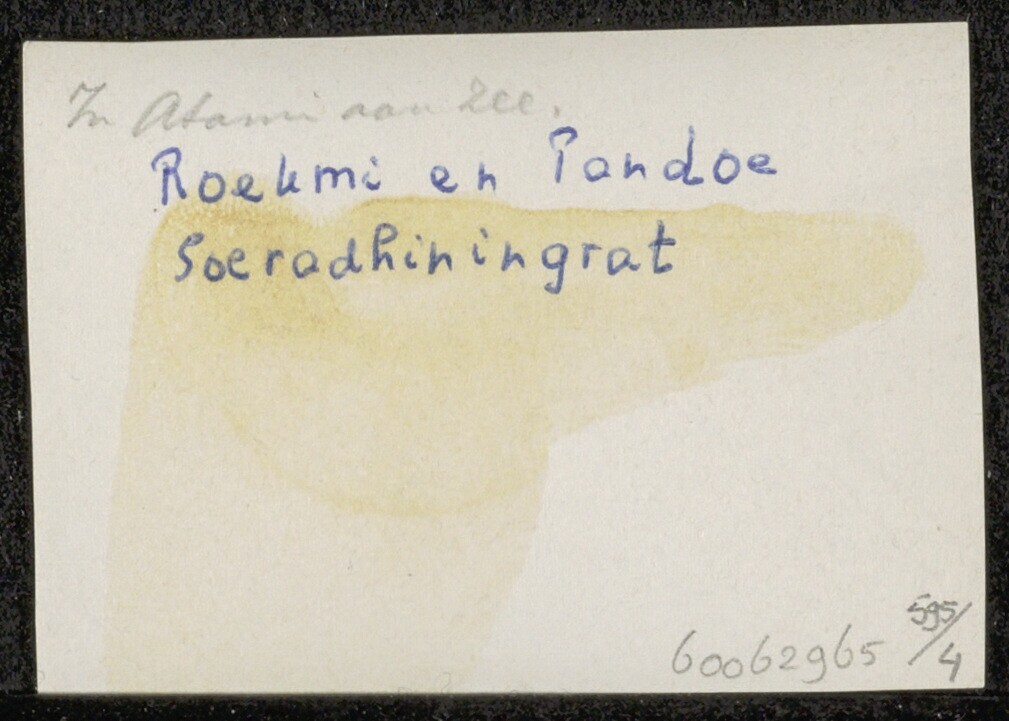 In Atami aan Zee.
Roekmi en Pandoe
Soeradhiningrat
595/4
60062965